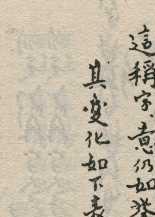 這稱字、意仍如
其變化如下表